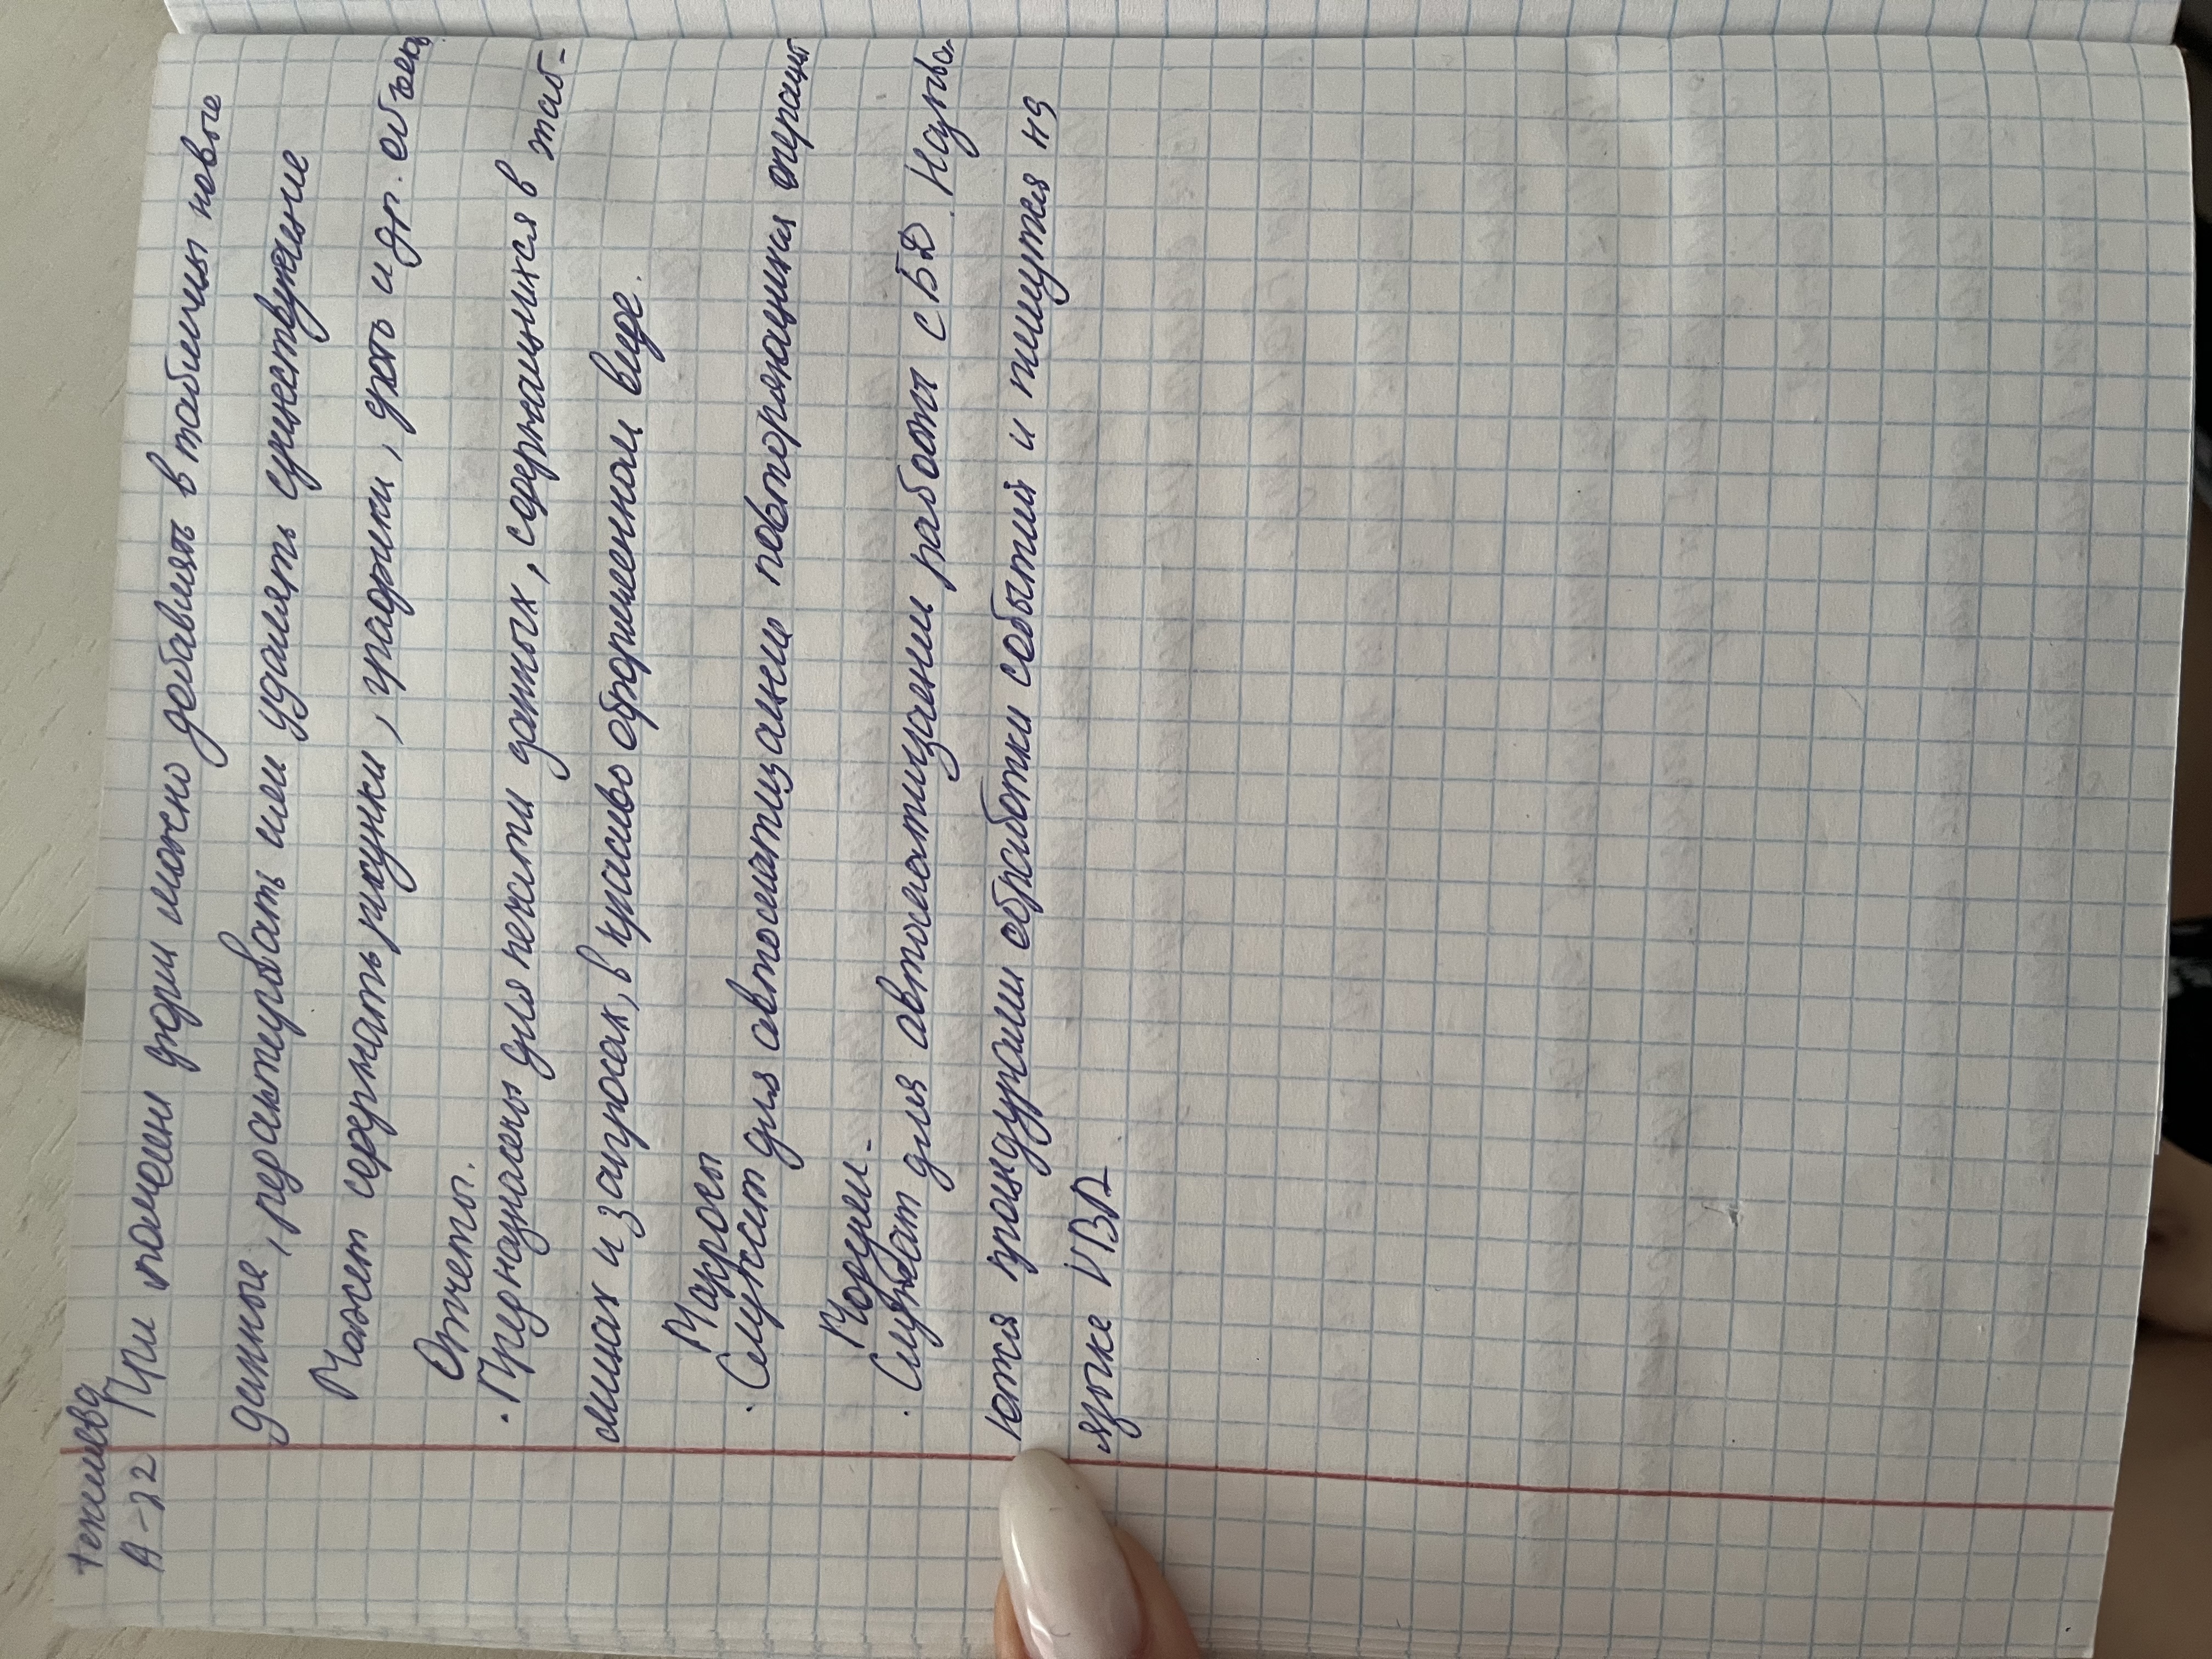 Текшева
А-22 При помощи форм можно добавлять в таблицы новые
данные, редактировать или удалять существующие
Может содержать рисунки, графики, фото и др. объек
Отчеты.
· Предназначены для печати данных, содержащихся в таб-
лицах и запросах, в красиво оформленном виде.
Макросы
· Служат для автоматизации повторяющихся операций
Модули-
· Служат для автоматизации работы с БД. Назыв
ются процедурами обработки событий и пишутся на
языке VBA